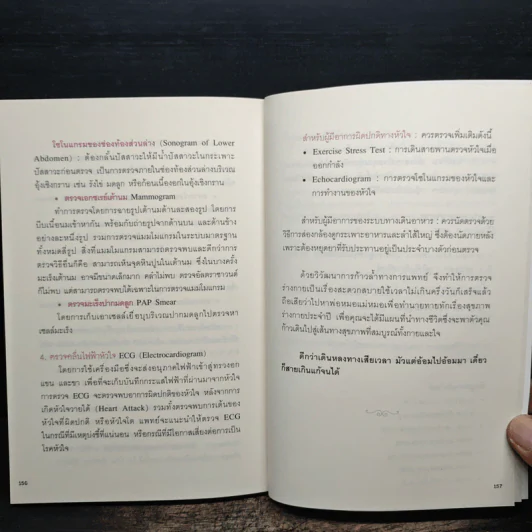 โซโนแกรมของช่องท้องส่วนล่าง (Sonogram of Lower
Abdomen) : ต้องกลั้นปัสสาวะให้มีน้ำปัสสาวะในกระเพาะ
ปัสสาวะก่อนตรวจ เป็นการตรวจภายในช่องท้องส่วนล่างบริเวณ
อุ้งเชิงกราน เช่น รังไข่ มดลูก หรือก้อนเนื้องอกในอุ้งเชิงกราน
• ตรวจเอกซเรย์เต้านม Mammogram
ทำการตรวจโดยการฉายรูปเต้านมด้านละสองรูป โดยการ
บีบเนื้อนมเข้าหากัน พร้อมกับถ่ายรูปจากด้านบน และด้านข้าง
อย่างละหนึ่งรูป รวมการตรวจแมมโมแกรมในระบบมาตรฐาน
ทั้งหมดสี่รูป สิ่งที่แมมโมแกรมสามารถตรวจพบและดีกว่าการ
ตรวจวิธีอื่นก็คือ สามารถเห็นจุดหินปูนในเต้านม ซึ่งในบางครั้ง
มะเร็งเต้านม อาจมีขนาดเล็กมาก คลำไม่พบ ตรวจอัลตราซาวนด์
ก็ไม่พบ แต่สามารถตรวจพบได้เฉพาะในการตรวจแมมโมแกรม
• ตรวจมะเร็งปากมดลูก PAP Smear
โดยการเก็บเอาเซลล์เยื่อบุบริเวณปากมดลูกไปตรวจหา
เซลล์มะเร็ง
4. ตรวจคลื่นไฟฟ้าหัวใจ ECG (Electrocardiogram)
โดยการใช้เครื่องมือซึ่งจะส่งอนุภาคไฟฟ้าเข้าสู่ทรวงอก
แขน และขา เพื่อที่จะเก็บบันทึกกระแสไฟฟ้าที่ผ่านมาจากหัวใจ
การตรวจ ECG จะตรวจพบอาการผิดปกติของหัวใจ หลังจากการ
เกิดหัวใจวายได้ (Heart Attack) รวมทั้งตรวจพบการเต้นของ
หัวใจที่ผิดปกติ หรือหัวใจโต แพทย์จะแนะนำให้ตรวจ ECG
ในกรณีที่มีเหตุบ่งชี้ที่แน่นอน หรือกรณีที่มีโอกาสเสี่ยงต่อการเป็น
โรคหัวใจ
156
สำหรับผู้มีอาการผิดปกติทางหัวใจ : ควรตรวจเพิ่มเติมดังนี้
• Exercise Stress Test : การเดินสายพานตรวจหัวใจเมื่อ
ออกกำลัง
• Echocardiogram : การตรวจโซโนแกรมของหัวใจและ
การทำงานของหัวใจ
สำหรับผู้มีอาการของระบบทางเดินอาหาร : ควรนัดตรวจด้วย
วิธีการส่องกล้องดูกระเพาะอาหารและลำไส้ใหญ่ ซึ่งต้องนัดภายหลัง
เพราะต้องหยุดยาที่รับประทานอยู่เป็นประจำบางตัวก่อนตรวจ
ด้วยวิวัฒนาการก้าวล้ำทางการแพทย์ จึงทำให้การตรวจ
ร่างกายเป็นเรื่องสะดวกสบายใช้เวลาไม่เกินครึ่งวันก็เสร็จแล้ว
ถือเสียว่าไปหาพ่อหมอแม่หมอเพื่อทำนายทายทักเรื่องสุขภาพ
ร่างกายประจำปี เพื่อคุณจะได้มีแผนที่นำทางชีวิตซึ่งจะพาตัวคุณ
ก้าวเดินไปสู่เส้นทางสุขภาพที่สมบูรณ์ทั้งกายและใจ
ดีกว่าเดินหลงทางเสียเวลา มัวแต่อ้อมไปอ้อมมา เดี๋ยว
ก็สายเกินแก้จนได้
157